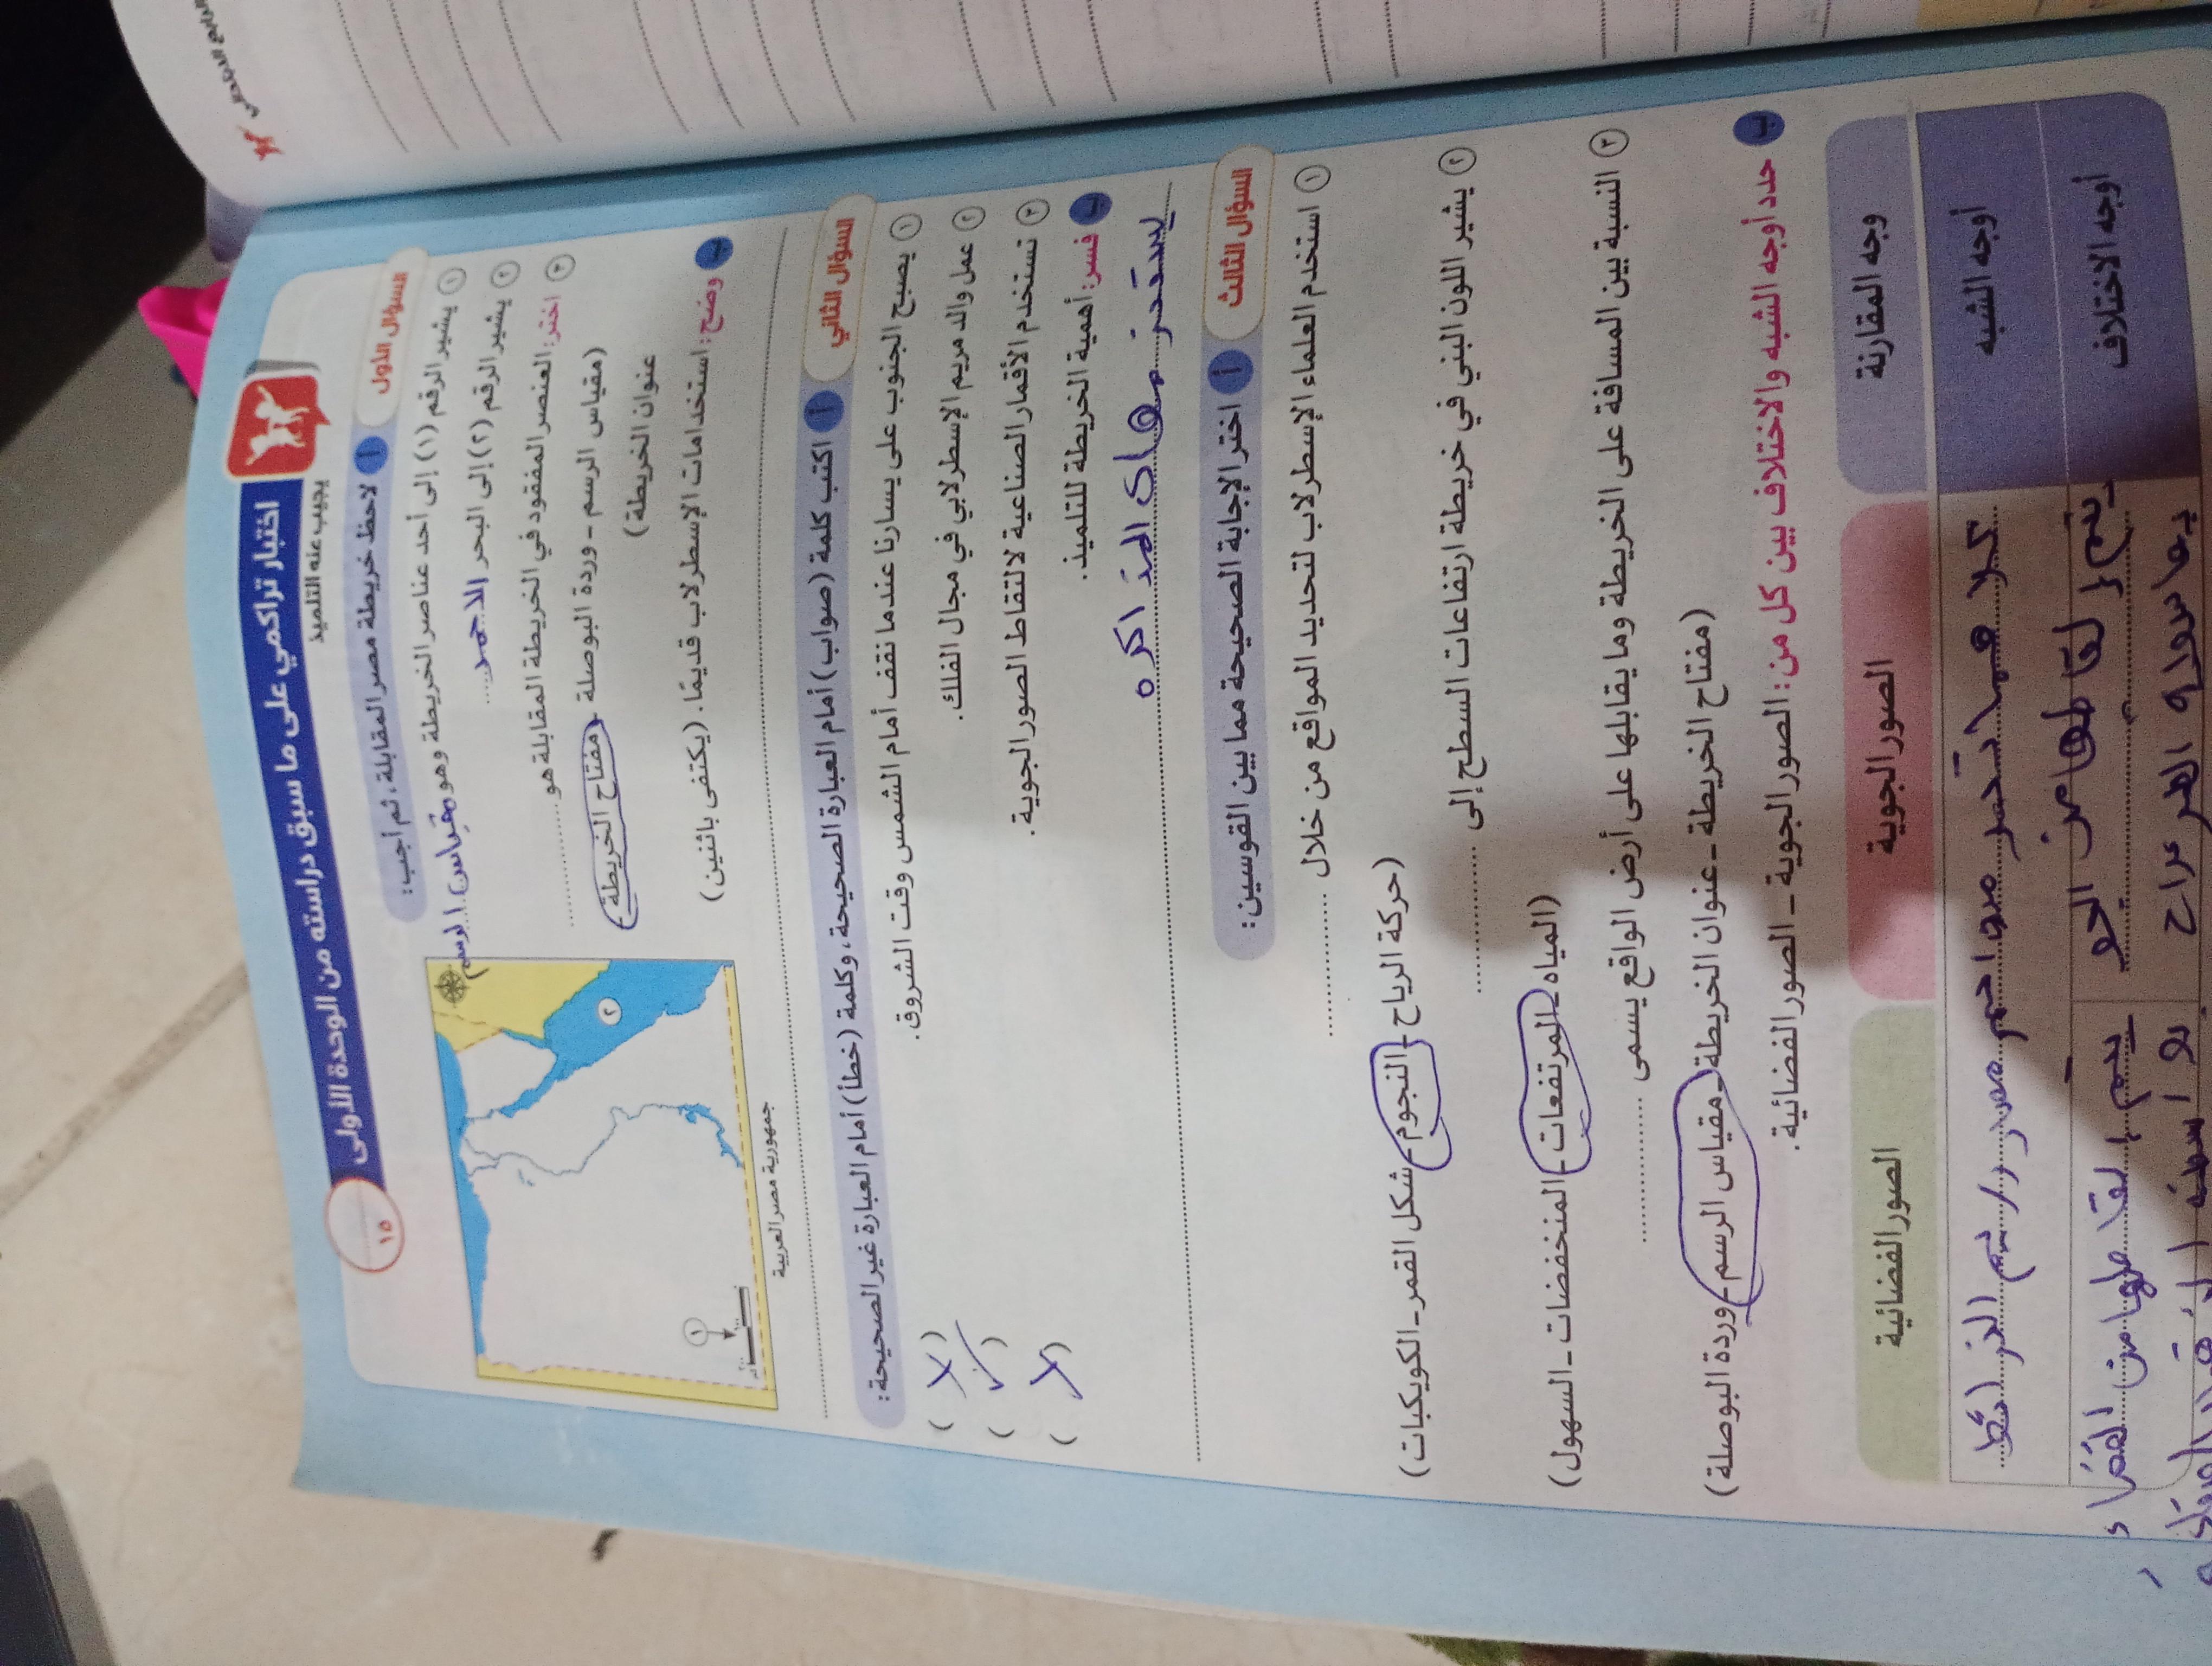 اختبار تراكمي على ما سبق دراسته من الوحدة الأولى
١٥
يجيب عنه التلميذ
السؤال الأول
أ لاحظ خريطة مصر المقابلة، ثم أجب:
١ يشير الرقم (١) إلى أحد عناصر الخريطة وهو مقياس الرسم
٢ يشير الرقم (٢) إلى البحر الاحمر
٣ اختر: العنصر المفقود في الخريطة المقابلة هو
(مقياس الرسم - وردة البوصلة - مفتاح الخريطة -
عنوان الخريطة)
ب وضح: استخدامات الإسطرلاب قديمًا. (يكتفى باثنين)
٢
١
جمهورية مصر العربية
السؤال الثاني
أ اكتب كلمة (صواب) أمام العبارة الصحيحة، وكلمة (خطأ) أمام العبارة غير الصحيحة:
١ يصبح الجنوب على يسارنا عندما نقف أمام الشمس وقت الشروق. (X)
٢ عمل والد مريم الإسطرلابي في مجال الفلك. (✓)
٣ تستخدم الأقمار الصناعية لالتقاط الصور الجوية. (X)
ب فسر: أهمية الخريطة للتلميذ.
المذاكره
السؤال الثالث
أ اختر الإجابة الصحيحة مما بين القوسين:
١ استخدم العلماء الإسطرلاب لتحديد المواقع من خلال
(حركة الرياح - النجوم - شكل القمر - الكويكبات)
٢ يشير اللون البني في خريطة ارتفاعات السطح إلى
(المياه - المرتفعات - المنخفضات - السهول)
٣ النسبة بين المسافة على الخريطة وما يقابلها على أرض الواقع يسمى
(مفتاح الخريطة - عنوان الخريطة - مقياس الرسم - وردة البوصلة)
ب حدد أوجه الشبه والاختلاف بين كل من: الصور الجوية - الصور الفضائية.
وجه المقارنة الصور الجوية الصور الفضائية
أوجه الشبه
أوجه الاختلاف يتم التقاطها من الجو يتم التقاطها من الفضاء